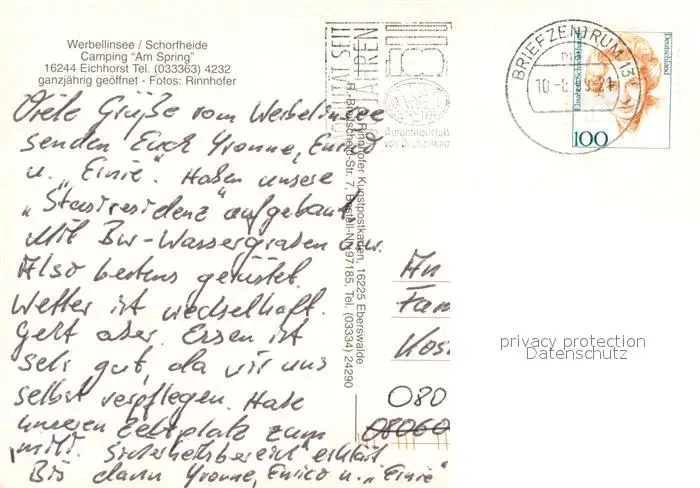 Werbellinsee / Schorfheide
Camping "Am Spring"
16244 Eichhorst Tel. (033363) 4232
ganzjährig geöffnet - Fotos: Rinnhofer
Viele Grüße vom Werbellinsee
senden Euch Yvonne, Enrico
u. "Einie". Haben unsere
"Stasiresidenz" aufgebaut
Mit Bw-Wassergraben u.w.
Also bestens gerüstet.
Wetter ist wechselhaft.
Geht aber. Essen ist
sehr gut, da wir uns
selbst verpflegen. Habe
unseren Zeltplatz zum
"milit. Sicherheitsbereich" erklärt
Bis dann Yvonne, Enrico u. "Einie"
Rinnhofer Kunstpostkarten, 16225 Eberswalde
R.-Breitscheid-Str. 7, Bestell-Nr. 97185, Tel. (03334) 24290
SEIT
JAHREN
Automobilclub
von Deutschland
BRIEFZENTRUM 13
21
Deutschland
100
An
Fam
080
08060
privacy protection
Datenschutz